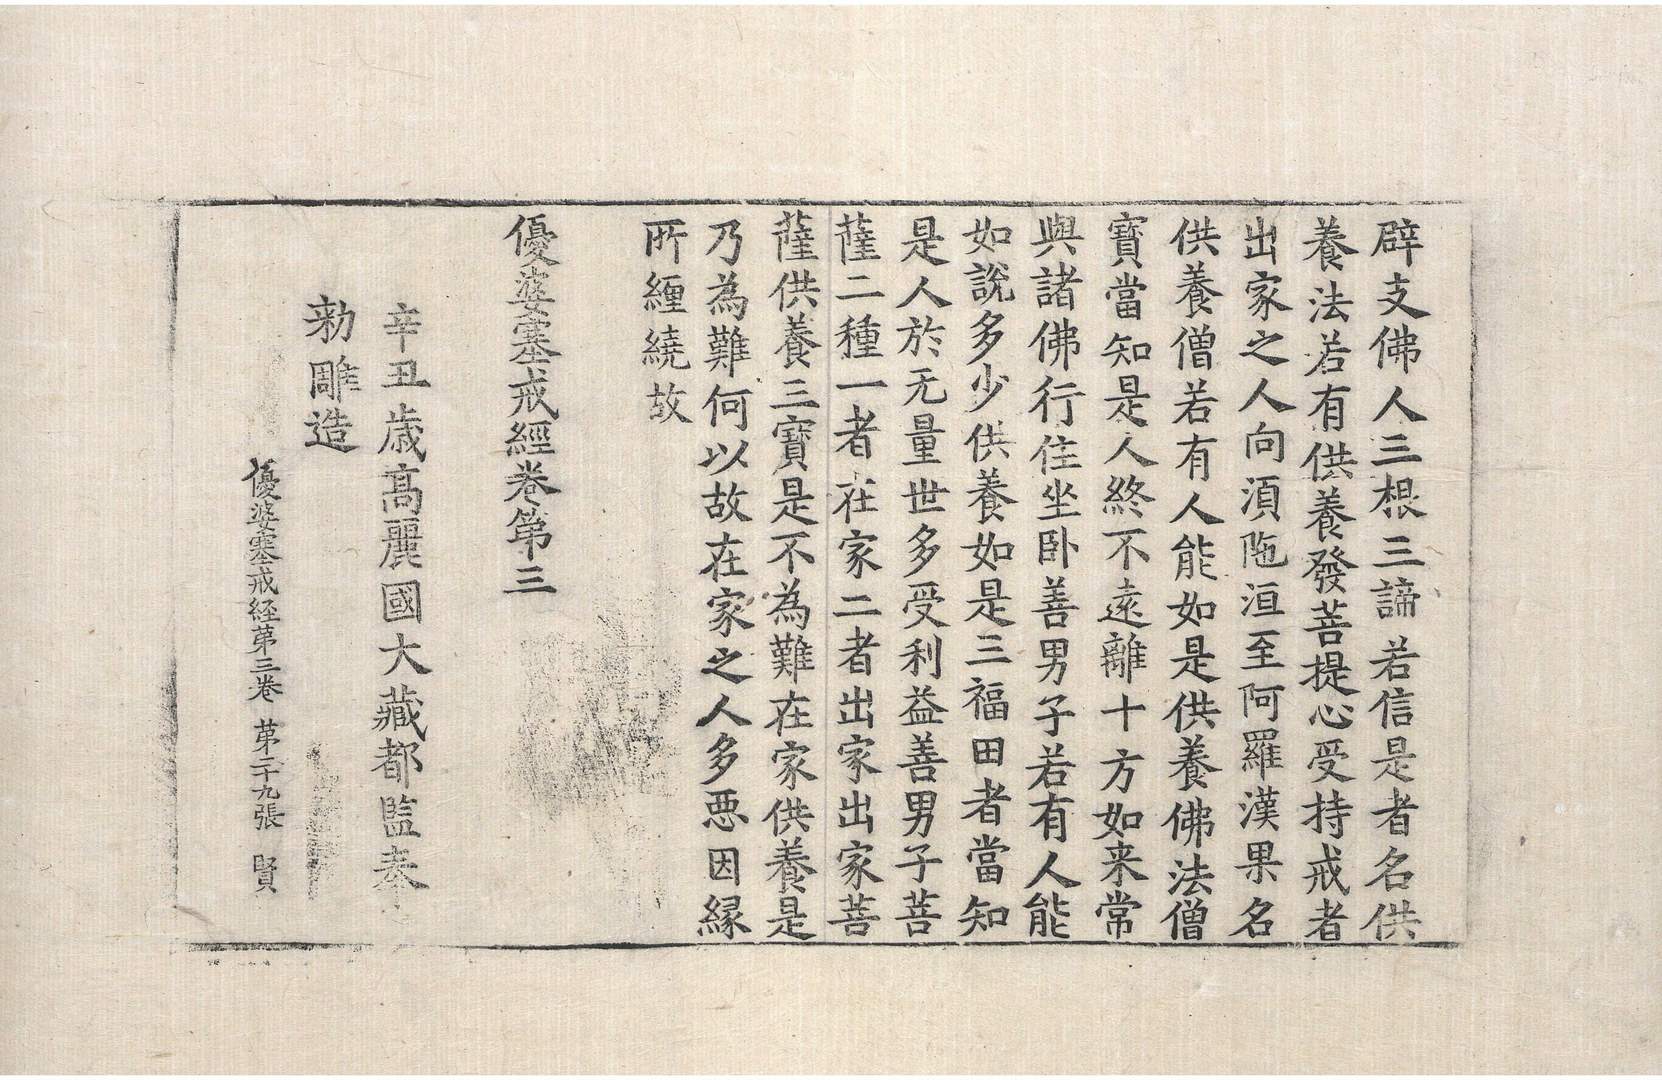 辟支佛人三根三諦若信是者名供
養法若有供養發菩提心受持戒者
出家之人向湏陁洹至阿羅漢果名
供養僧若有人能如是供養佛法僧
寶當知是人終不遠離十方如来常
與諸佛行住坐卧善男子若有人能
如說多少供養如是三福田者當知
是人於无量世多受利益善男子菩
薩二種一者在家二者出家出家菩
薩供養三寶是不為難在家供養是
乃為難何以故在家之人多惡因縁
所纏繞故
優婆塞戒經卷第三
辛丑歲高麗國大藏都監奉
勑雕造
優婆塞戒経苐三卷 苐二十九張 賢